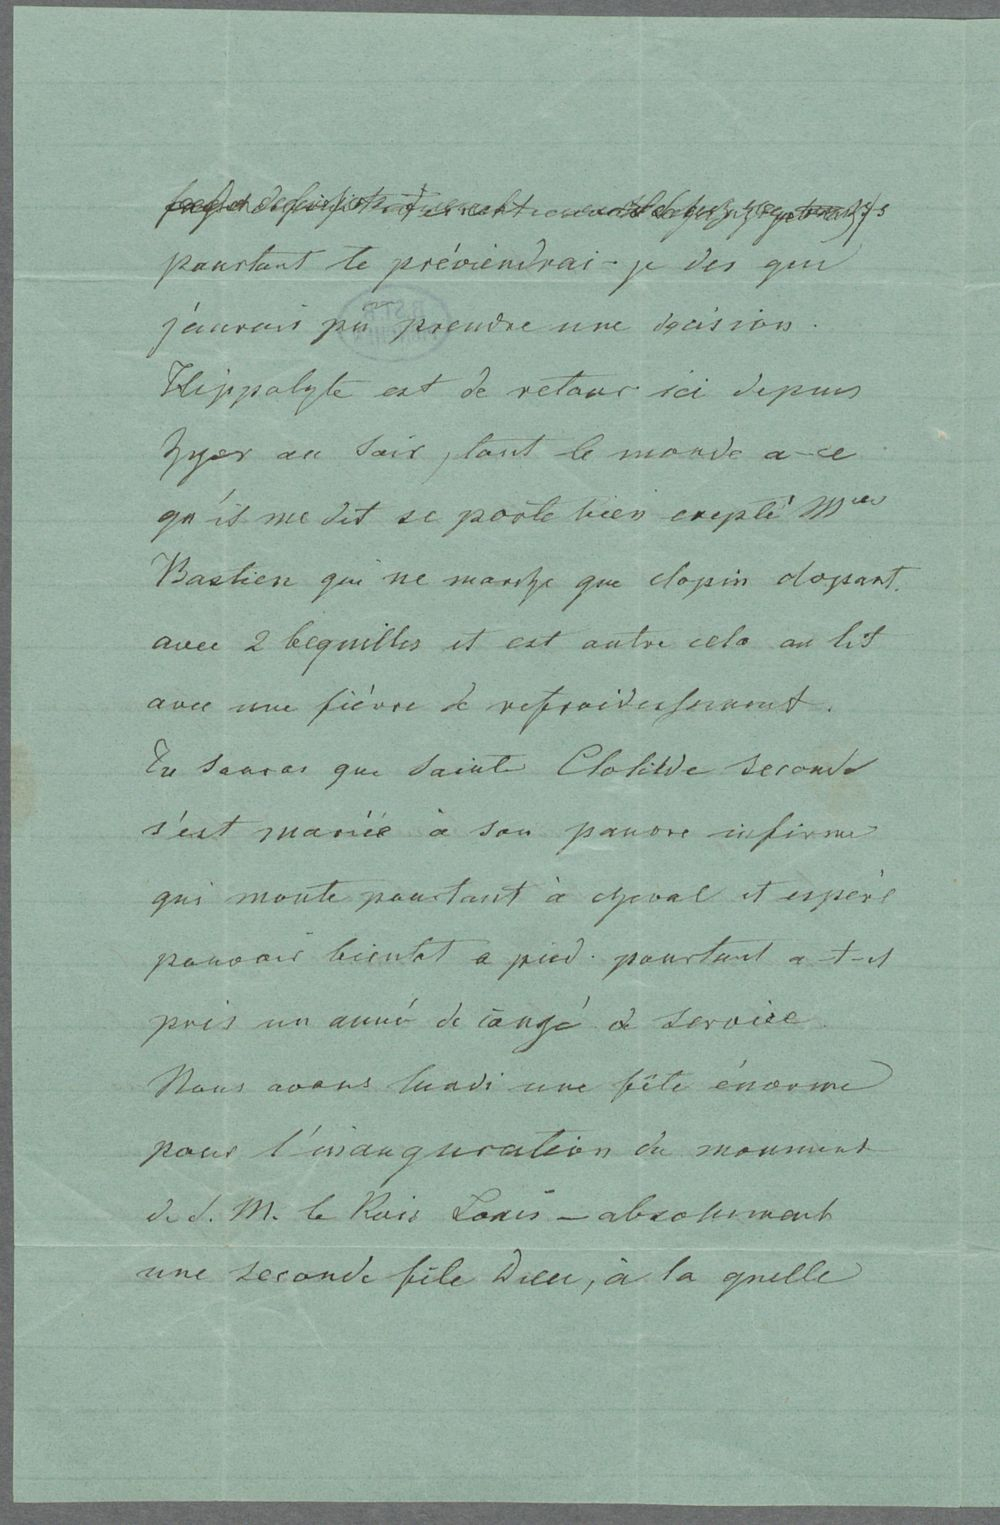 pourtant te préviendrai-je des que
j'aurais pû prendre une décision.
Hippolyte est de retour ici depuis
hyer au soir, tout le monde a-ce
qu'il me dit se porte bien exepté Mme
Bastien qui ne marche que clopin clopant.
avec 2 bequilles et est outre cela au lit
avec une fièvre de refroidissement.
Tu sauras que Sainte Clotilde seconde
s'est mariée à son pauvre infirme
qui monte pourtant à cheval et espère
pouvoir bientot a pied. pourtant a-t-il
pris un anné de congé de service.
Nous avons lundi une fête énorme
pour l'inauguration du monument
de S. M. le Roi Louis – absolument
une seconde fête Dieu, à la quelle